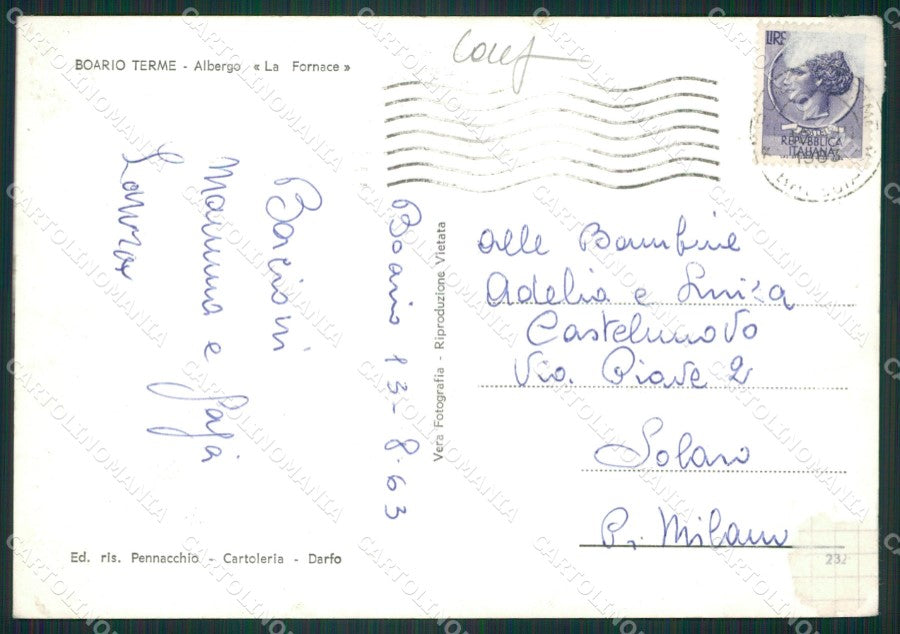 BOARIO TERME - Albergo « La Fornace »
LIRE
REPVBBLICA
ITALIANA
Bacioni
Mamma e Papà
Boario 13-8-63
Vera Fotografia - Riproduzione Vietata
alle Bambine
Adelia e
Castelnuovo
Via. Piave 2
Solaro
Pr. Milano
Ed. ris. Pennacchio - Cartoleria - Darfo
232
CARTOLINOMANIA